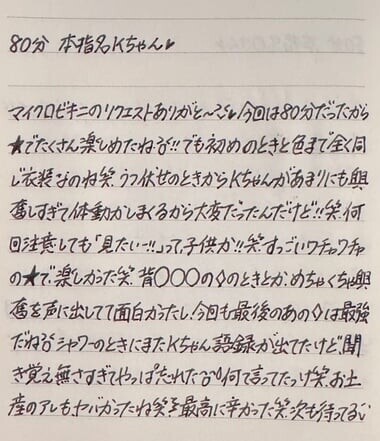 80分 本指名Kちゃん♥
マイクロビキニのリクエストありがと〜♥今回は80分だったから
★でたくさん楽しめたね!!でも初めのときと色まで全く同
じ衣装なのね笑 うつ伏せのときからKちゃんがあまりにも興
奮しすぎて体動かしまくるから大変だったんだけど!!笑 何
回注意しても「見たい〜!!」って、子供か!!笑 すっごいワチャワチャ
の★で楽しかった笑 背〇〇〇の◇のときとか、めちゃくちゃ興
奮を声に出してて面白かったし!今回も最後のあの◇は最強
だね シャワーのときにまたKちゃん語録が出てたけど、聞
き覚え無さすぎてやっぱ 何て言ってたっけ笑 お土
産のアレもヤバかったね笑 最高に辛かった笑 次も待ってる